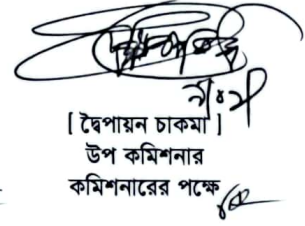 [ দ্বৈপায়ন চাকমা ]
উপ কমিশনার
কমিশনারের পক্ষে